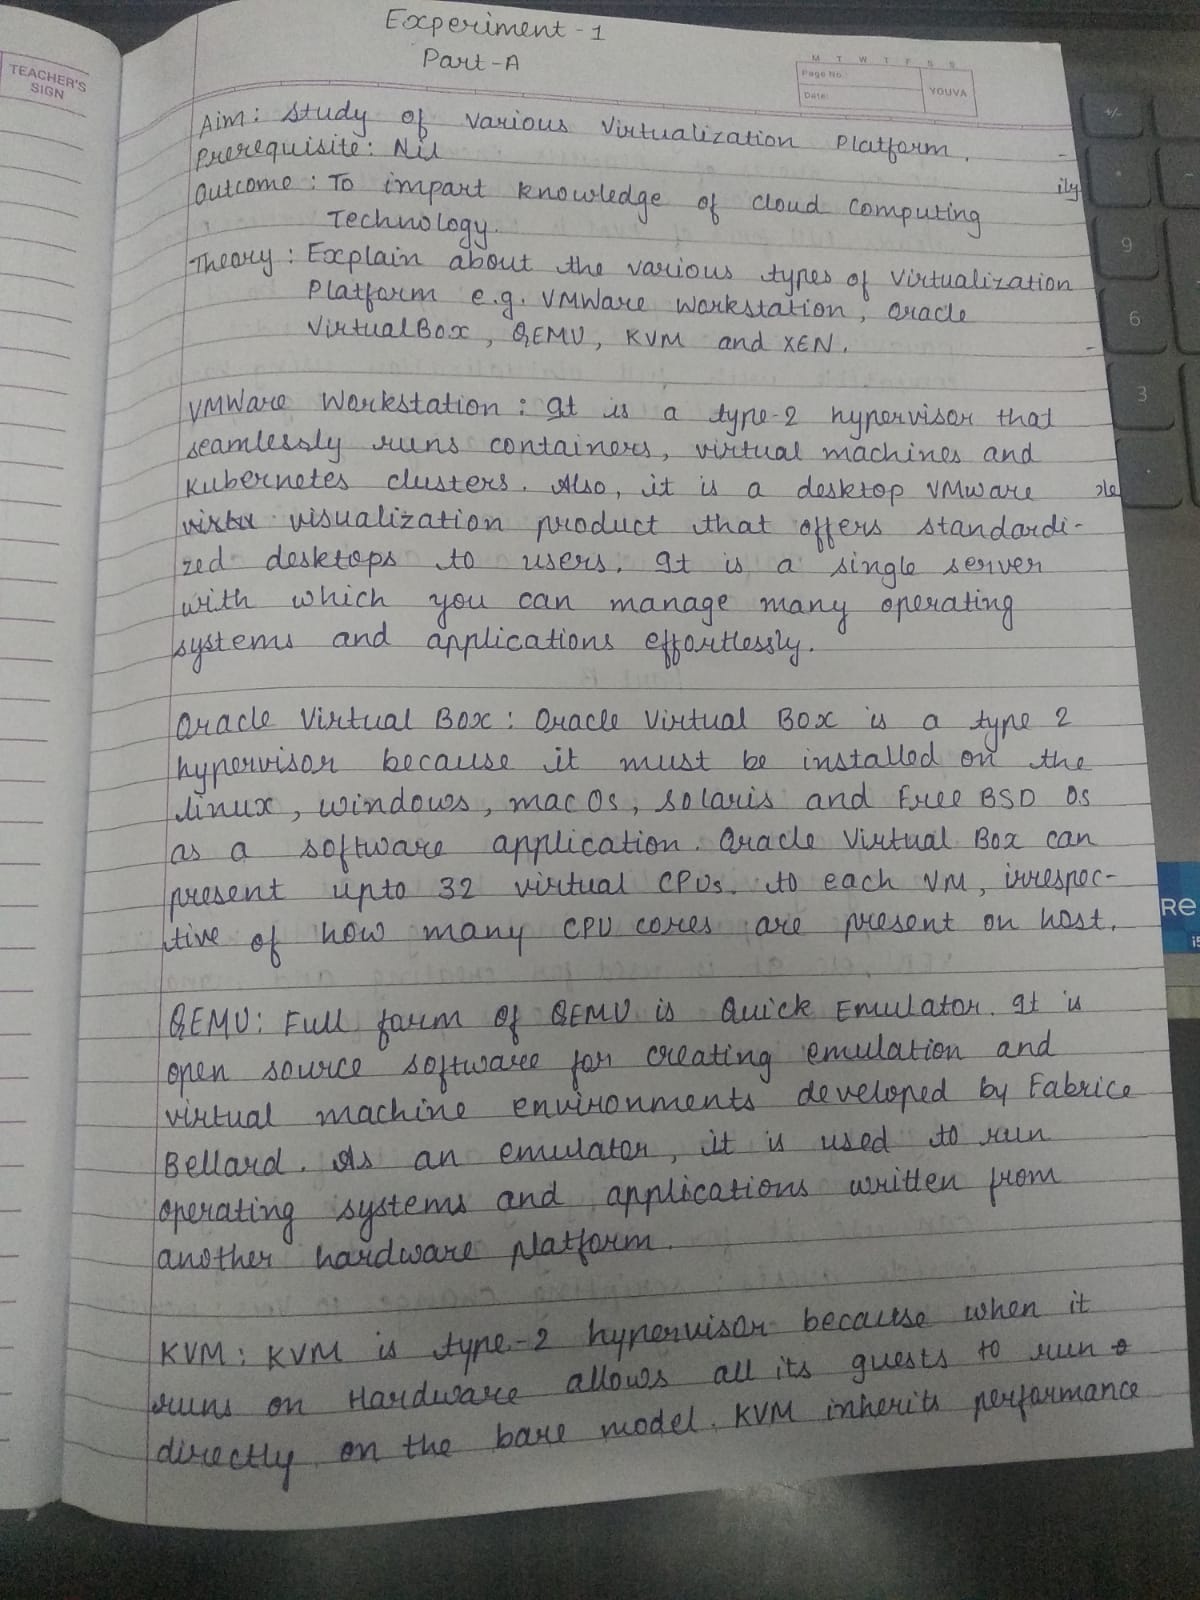 Experiment - 1
Part-A
TEACHER'S
SIGN
M T W T F S S
Page No.:
Date:
YOUVA
Aim: Study of various Virtualization Platform.
Prerequisite: Nil
Outcome: To impart knowledge of cloud computing
Technology.
Theory: Explain about the various types of Virtualization
Platform e.g. VMWare Workstation, Oracle
VirtualBox, QEMU, KVM and XEN.
VMWare Workstation: It is a type-2 hypervisor that
seamlessly runs containers, virtual machines and
Kubernetes clusters. Also, it is a desktop VMware
visualization product that offers standardi-
zed desktops to users. It is a single server
with which you can manage many operating
systems and applications effortlessly.
Oracle Virtual Box: Oracle Virtual Box is a type 2
hypervisor because it must be installed on the
linux, windows, mac Os, Solaris and Free BSD OS
as a software application. Oracle Virtual Box can
present upto 32 virtual CPUs. to each VM, irrespec-
tive of how many CPU cores are present on host.
QEMU: Full form of QEMU is Quick Emulator. It is
open source software for creating emulation and
virtual machine environments developed by Fabrice
Bellard. As an emulator, it is used to run
operating systems and applications written from
another hardware platform.
KVM: KVM is type-2 hypervisor because when it
runs on Hardware allows all its guests to run
directly on the bare model. KVM inherits performance
ily
+/-
9
6
3